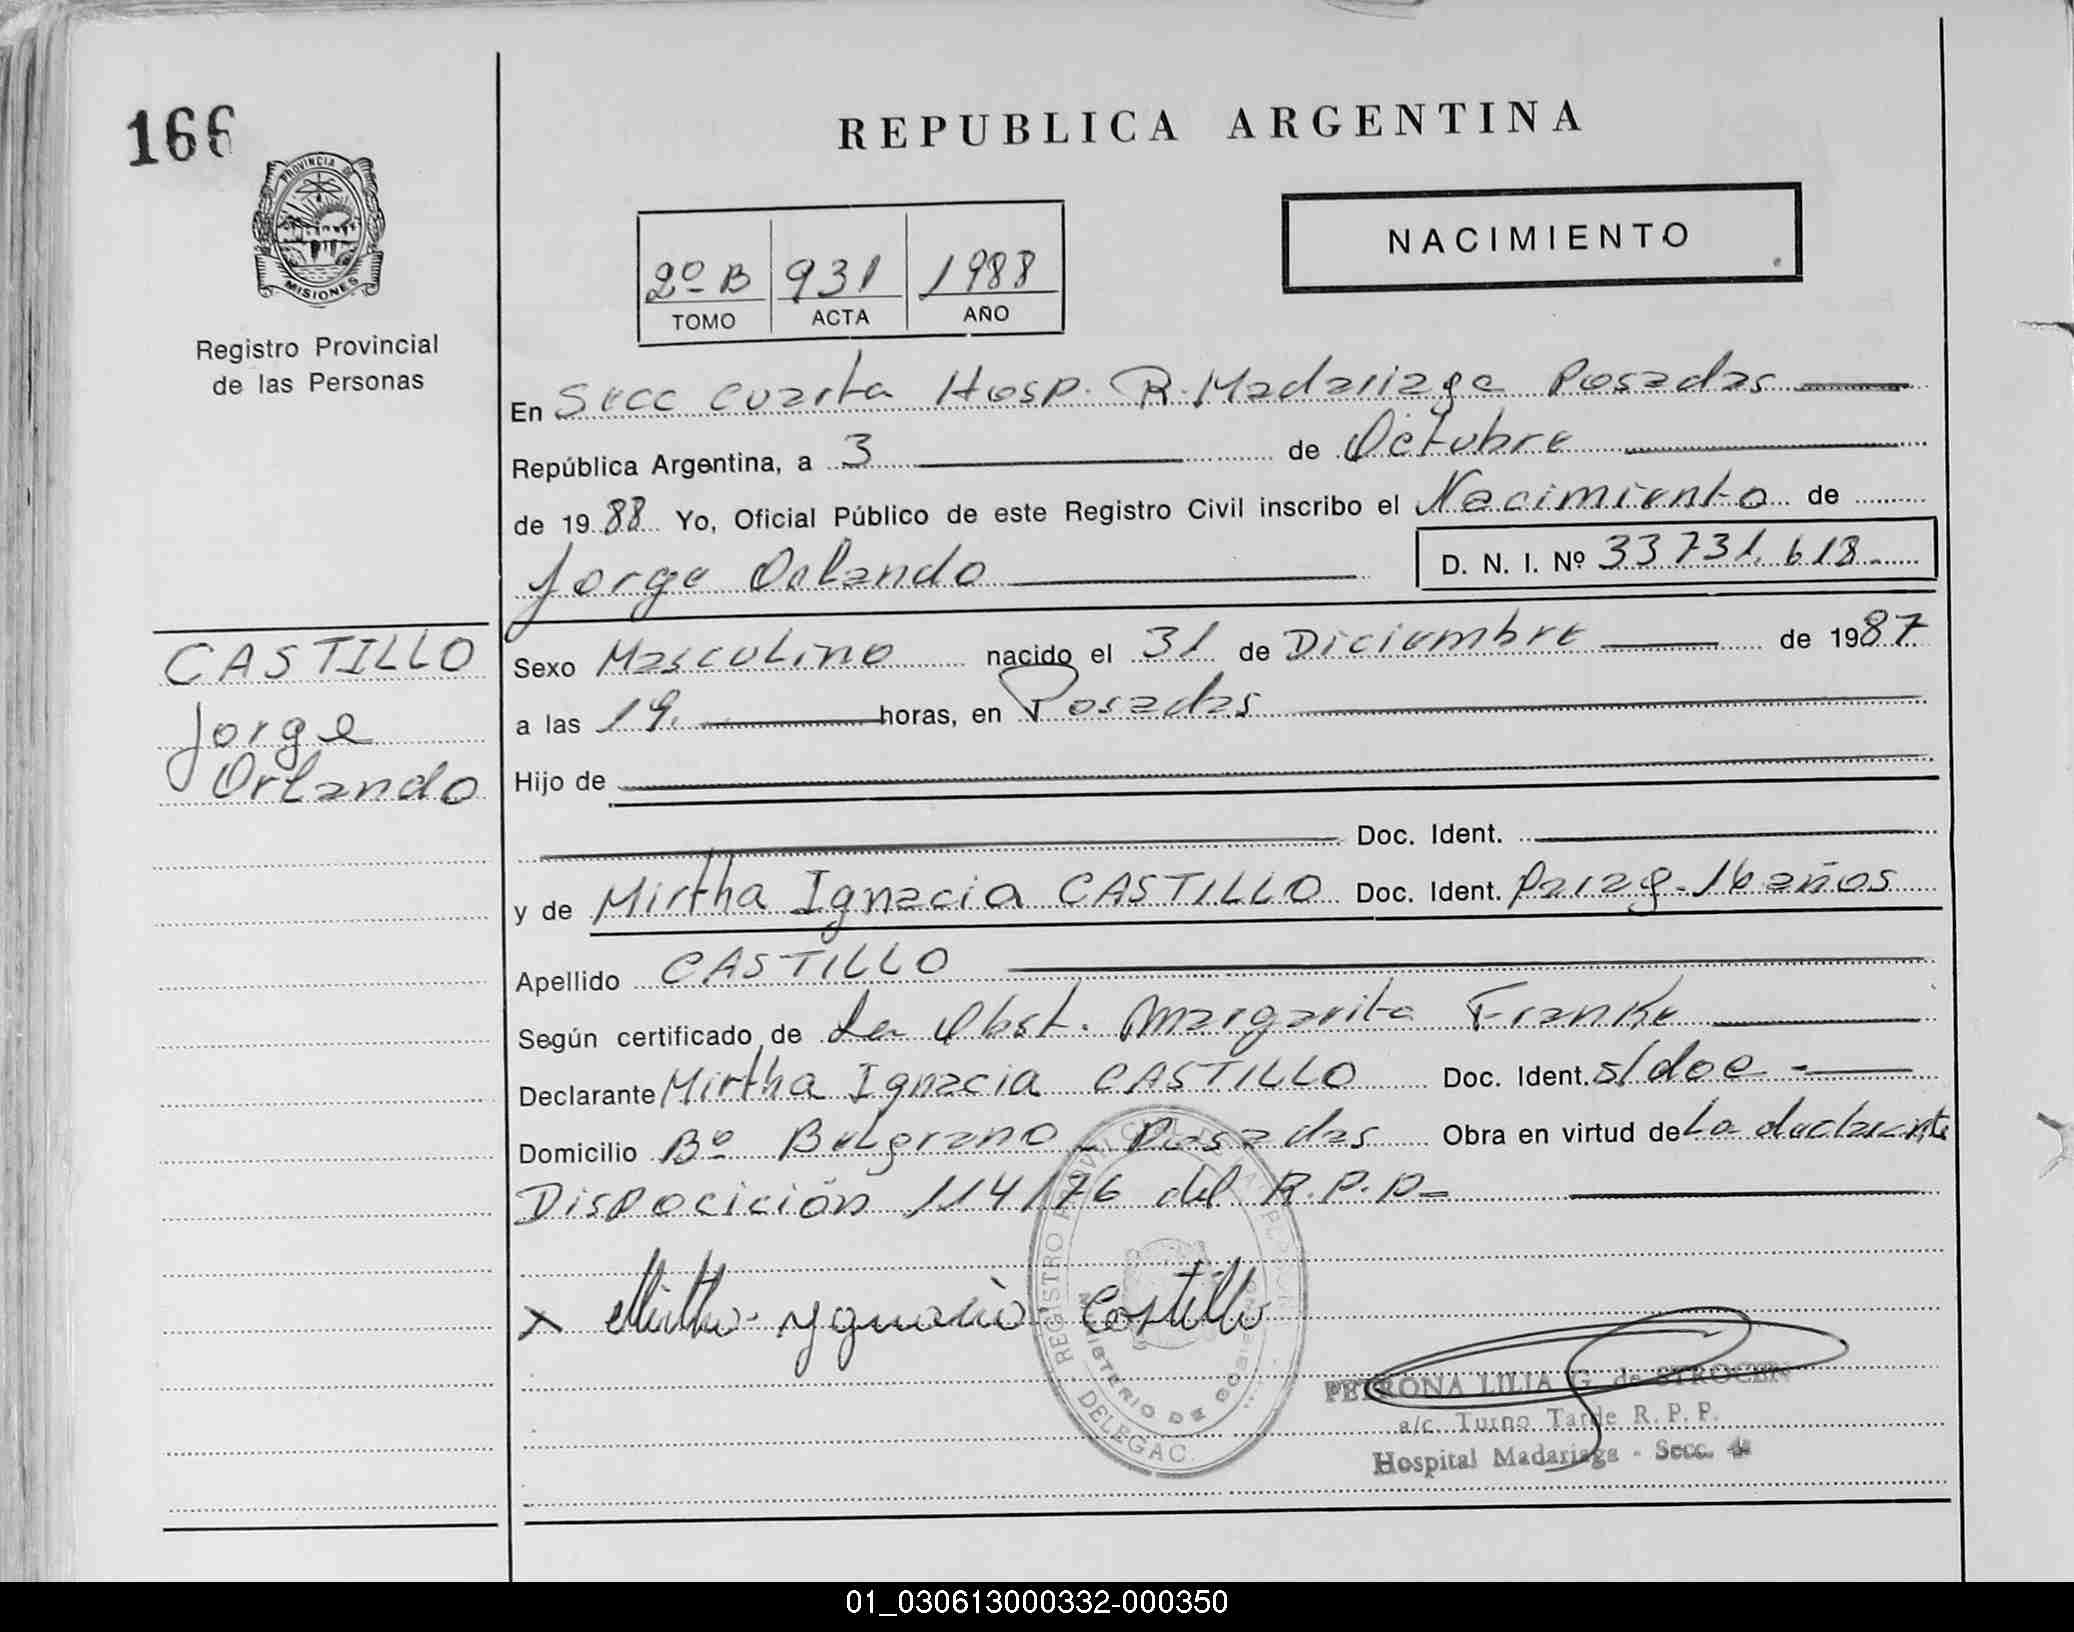 166
REPUBLICA ARGENTINA
PROVINCIA DE
MISIONES
2º B 931 1988
TOMO ACTA AÑO
NACIMIENTO
Registro Provincial
de las Personas
En Secc cuarta Hosp. R. Madariaga Posadas
República Argentina, a 3 de Octubre
de 1988 Yo, Oficial Público de este Registro Civil inscribo el Nacimiento de
Jorge Orlando D. N. I. Nº 33731.618.-
CASTILLO
Jorge
Orlando
Sexo Masculino nacido el 31 de Diciembre de 1987
a las 19. horas, en Posadas
Hijo de
Doc. Ident.
y de Mirtha Ignacia CASTILLO Doc. Ident. Parag.-16 años
Apellido CASTILLO
Según certificado de La Obst. Margarita Franke
Declarante Mirtha Ignacia CASTILLO Doc. Ident. s/doc -
Domicilio Bº Belgrano - Posadas Obra en virtud de La declarante
Disposición 114/76 del R.P.P.-
x Mirtha Ygnacia Castillo
REGISTRO
MINISTERIO DE GOBIERNO
DELEGAC.
PETRONA LILIA G. de STROCEN
a/c. Turno Tarde R. P. P.
Hospital Madariaga - Secc. 4
01_030613000332-000350